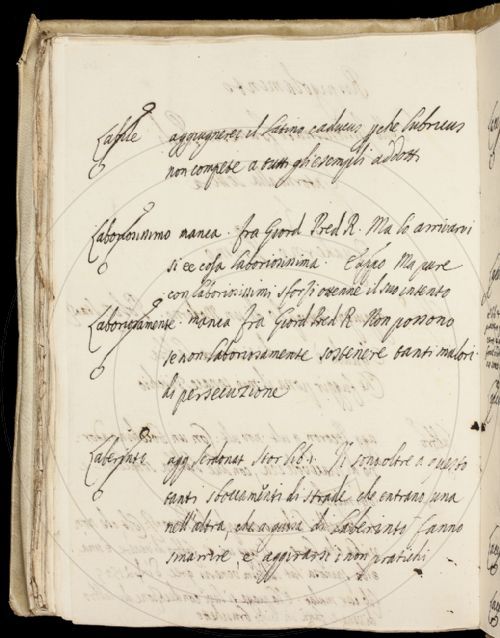 Labile aggiugnerei il Latino caducus pche lubricus
non compete a tutti gli esempli addotti
Laboriosissimo manca. fra Giord Pred R. Ma lo arrivarvi
si è cosa laboriosissima. E appo Ma pure
con laboriosissimi sforzi ottenne il suo intento
Laboriosamente manca fra Giord Pred R Non possono
se non laboriosamente sostenere tanti malori
di persecuzione
Laberinto agg Serdonat Stor lib 1. Vi sono oltre a questo
tanti sboccamenti di strade, che entrano una
nell'altra, che a guisa di Laberinto fanno
smarrire, e aggirarsi i non pratichi